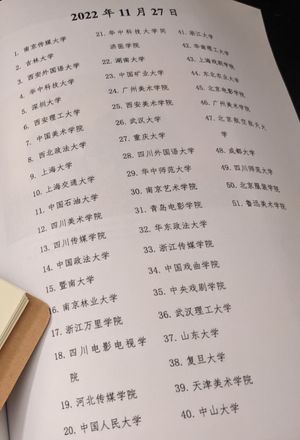 2022 年 11 月 27 日
1. 南京传媒大学
2. 吉林大学
3. 西安外国语大学
4. 华中科技大学
5. 深圳大学
6. 西安理工大学
7. 中国美术学院
8. 西北政法大学
9. 上海大学
10. 上海交通大学
11. 中国石油大学
12. 四川美术学院
13. 四川传媒学院
14. 中国政法大学
15. 暨南大学
16. 南京林业大学
17. 浙江万里学院
18. 四川电影电视学
院
19. 河北传媒学院
20. 中国人民大学
21. 华中科技大学同
济医学院
22. 湖南大学
23. 中国矿业大学
24. 广州美术学院
25. 西安美术学院
26. 武汉大学
27. 重庆大学
28. 四川外国语大学
29. 华中师范大学
30. 南京艺术学院
31. 青岛电影学院
32. 华东政法大学
33. 浙江传媒学院
34. 中国戏曲学院
35. 中央戏剧学院
36. 武汉理工大学
37. 山东大学
38. 复旦大学
39. 天津美术学院
40. 中山大学
41. 浙江大学
42. 华南理工大学
43. 上海戏剧学院
44. 东北农业大学
45. 北京电影学院
46. 广州美术学院
47. 北京航空航天大
学
48. 成都大学
49. 四川师范大学
50. 北京服装学院
51. 鲁迅美术学院